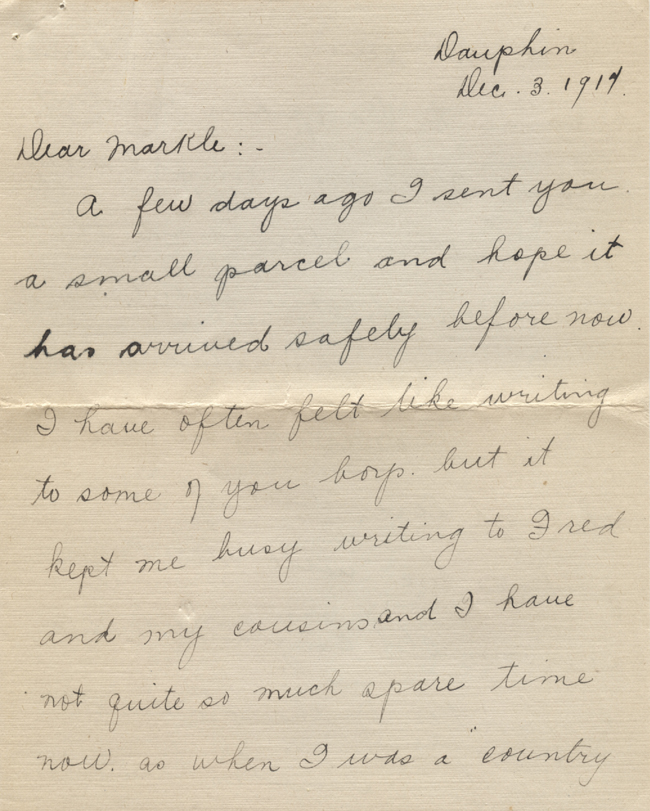 Dauphin
Dec. 3. 1917.
Dear Markle:-
A few days ago I sent you
a small parcel and hope it
has arrived safely before now.
I have often felt like writing
to some of you boys. but it
kept me busy writing to Fred
and my cousins and I have
not quite so much spare time
now. as when I was a "country